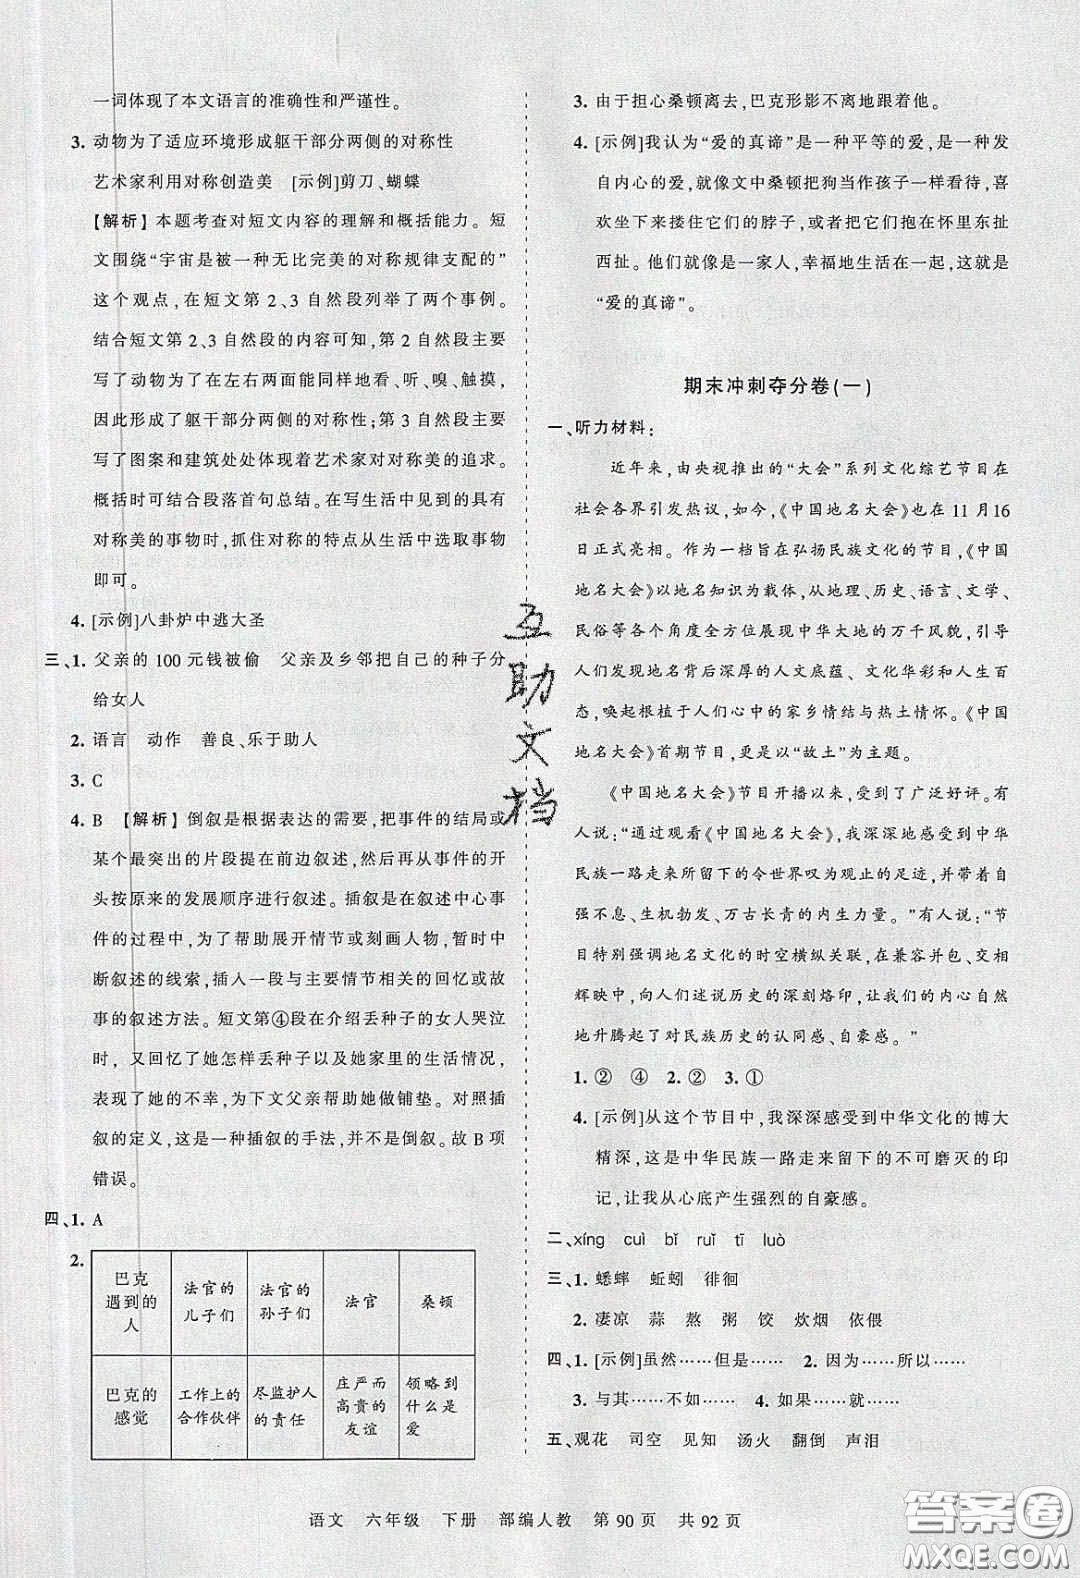 一词体现了本文语言的准确性和严谨性。
3. 动物为了适应环境形成躯干部分两侧的对称性
艺术家利用对称创造美　[示例]剪刀、蝴蝶
【解析】本题考查对短文内容的理解和概括能力。短
文围绕“宇宙是被一种无比完美的对称规律支配的”
这个观点，在短文第2、3自然段列举了两个事例。
结合短文第2、3自然段的内容可知，第2自然段主要
写了动物为了能在左右两面能同样地看、听、嗅、触摸，
因此形成了躯干部分两侧的对称性；第3自然段主要
写了图案和建筑处处体现着艺术家对对称美的追求。
概括时可结合段落首句总结。在写生活中见到的具有
对称美的事物时，抓住对称的特点从生活中选取事物
即可。
4. [示例]八卦炉中逃大圣
三、1. 父亲的100元钱被偷　父亲及乡邻把自己的种子分
给女人
2. 语言　动作　善良、乐于助人
3. C
4. B　【解析】倒叙是根据表达的需要，把事件的结局或
某个最突出的片段提在前边叙述，然后再从事件的开
头按原来的发展顺序进行叙述。插叙是在叙述中心事
件的过程中，为了帮助展开情节或刻画人物，暂时中
断叙述的线索，插入一段与主要情节相关的回忆或故
事的叙述方法。短文第④段在介绍丢种子的女人哭泣
时，又回忆了她怎样丢种子以及她家里的生活情况，
表现了她的不幸，为下文父亲帮助她做铺垫。对照插
叙的定义，这是一种插叙的手法，并不是倒叙。故B项
错误。
四、1. A
2.
巴克遇到的人　法官的儿子们　法官的孙子们　法官　桑顿
巴克的感觉　工作上的合作伙伴　尽监护人的责任　庄严而高贵的友谊　领略到什么是爱
3. 由于担心桑顿离去，巴克形影不离地跟着他。
4. [示例]我认为“爱的真谛”是一种平等的爱，是一种发
自内心的爱，就像文中桑顿把狗当作孩子一样看待，喜
欢坐下来搂住它们的脖子，或者把它们抱在怀里东扯
西扯。他们就像是一家人，幸福地生活在一起，这就是
“爱的真谛”。
期末冲刺夺分卷(一)
一、听力材料：
近年来，由央视推出的“大会”系列文化综艺节目在
社会各界引发热议，如今，《中国地名大会》也在11月16
日正式亮相。作为一档旨在弘扬民族文化的节目，《中国
地名大会》以地名知识为载体，从地理、历史、语言、文学、
民俗等各个角度全方位展现中华大地的万千风貌，带领
人们发现地名背后深厚的人文底蕴、文化华彩和人生百
态，唤起根植于人们心中的家乡情结与热土情怀。《中国
地名大会》首期节目，更是以“故土”为主题。
《中国地名大会》节目开播以来，受到了广泛好评。有
人说：“通过观看《中国地名大会》，我深深地感受到中华
民族一路走来所留下的令世界叹为观止的足迹，并带着自
强不息、生机勃发、万古长青的内生力量。”有人说：“节
目特别强调地名文化的时空横纵关联，在兼容并包、交相
辉映中，向人们述说历史的深刻烙印，让我们的内心自然
地升腾起了对民族历史的认同感、自豪感。”
1. ②　④　2. ②　3. ①
4. [示例]从这个节目中，我深深感受到中华文化的博大
精深，这是中华民族一路走来留下的不可磨灭的印
记，让我从心底产生强烈的自豪感。
二、xíng　cuì　bǐ　ruǐ　tī　luò
三、1. 蟋蟀　蚯蚓　徘徊
2. 凄凉　蒜　熬　粥　饺　炊烟　依偎
四、1. [示例]虽然……但是……　2. 因为……所以……
3. 与其……不如……　4. 如果……就……
五、观花　司空　见知　汤火　翻倒　声泪
互助文档
语文　六年级　下册　部编人教　第90页　共92页
答案圈
MXQE.COM